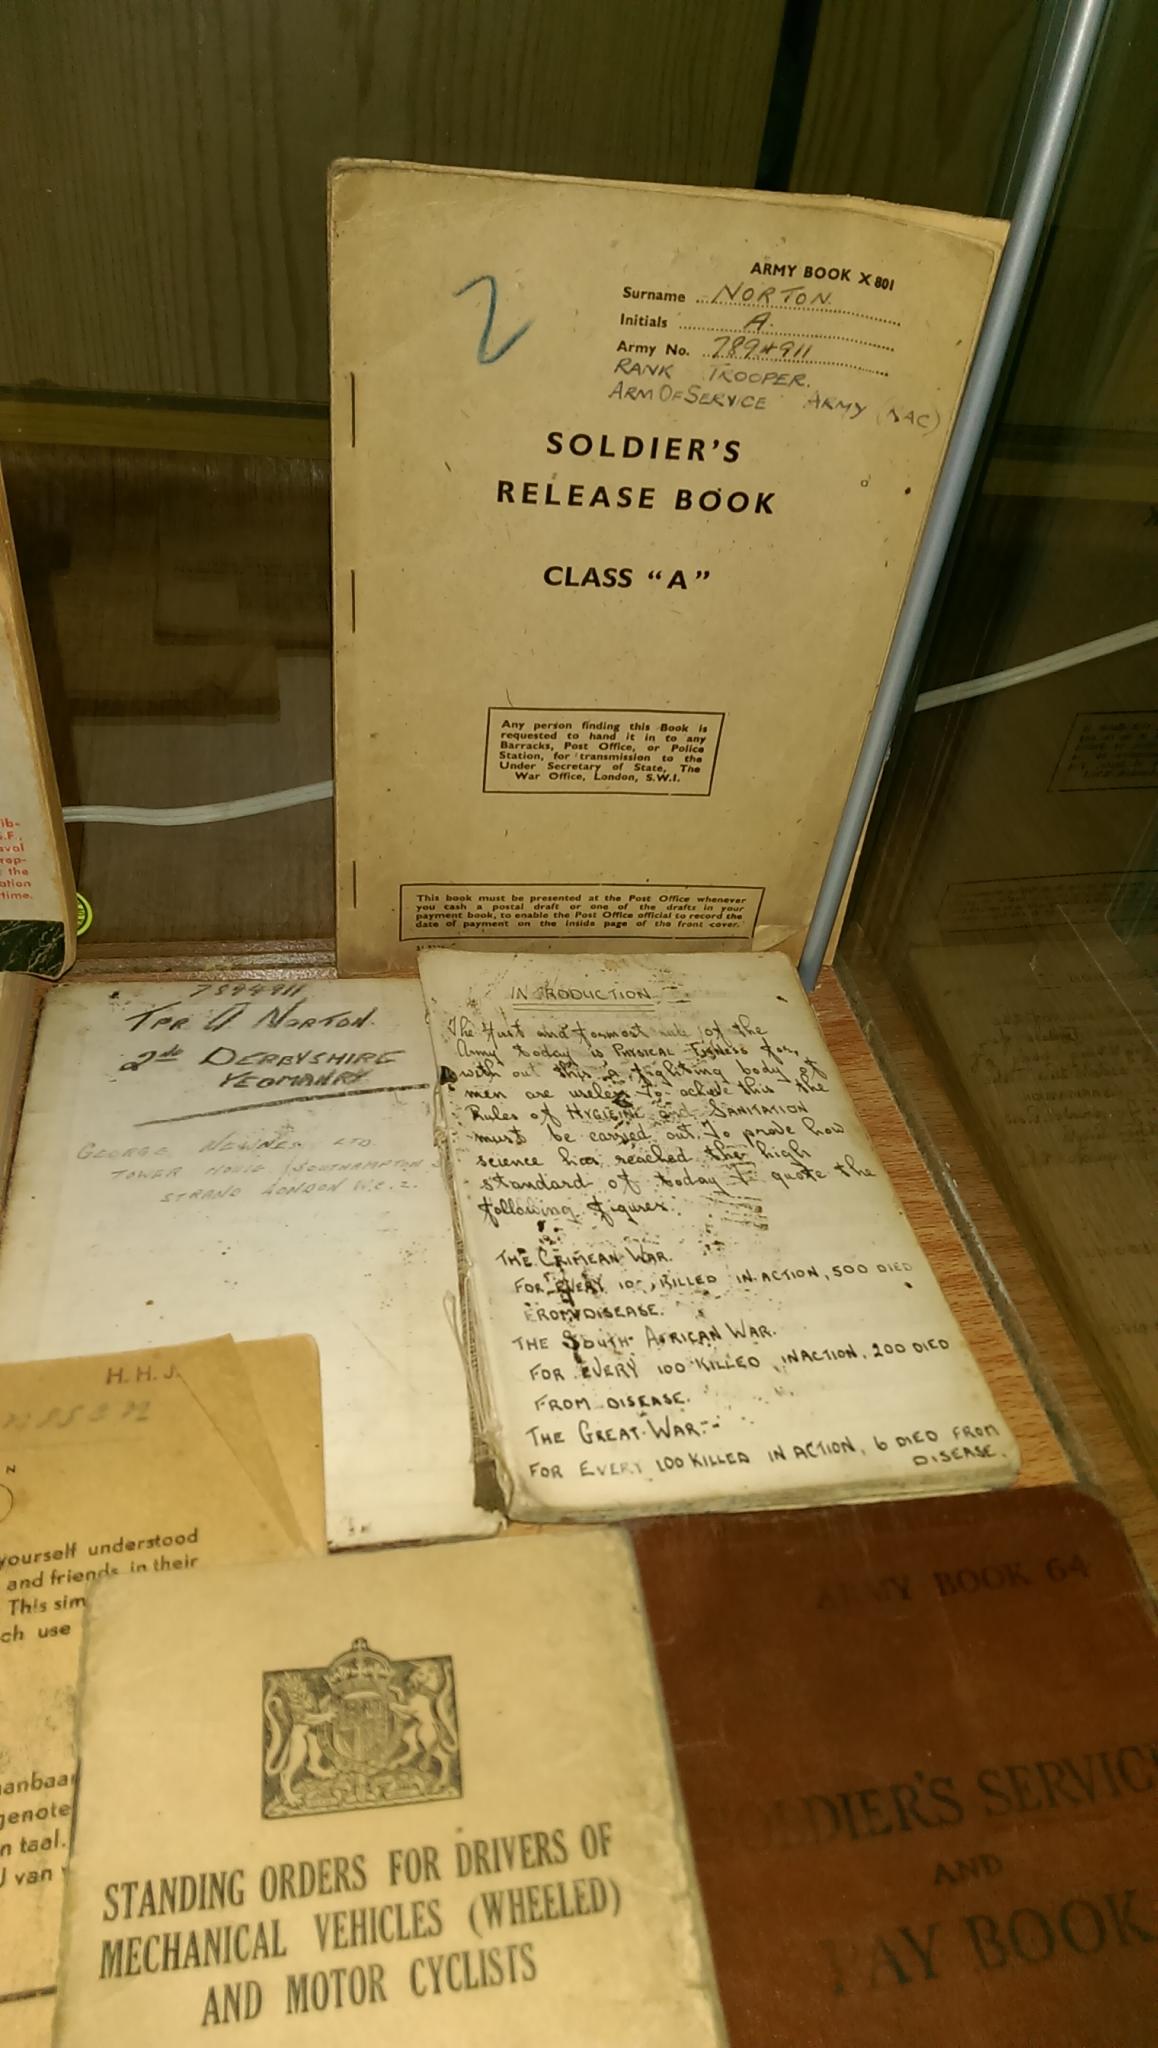 ARMY BOOK X 801
Surname NORTON
Initials A.
Army No. 7894911
RANK TROOPER.
ARM OF SERVICE ARMY (RAC)
2
SOLDIER'S
RELEASE BOOK
CLASS "A"
Any person finding this Book is
requested to hand it in to any
Barracks, Post Office, or Police
Station, for transmission to the
Under Secretary of State, The
War Office, London, S.W.1.
This book must be presented at the Post Office whenever
you cash a postal draft or one of the drafts in your
payment book, to enable the Post Office official to record the
date of payment on the inside page of the front cover.
ib-
S.F.,
aval
rop-
the
ation
time.
7894911
TPR A NORTON.
2nd DERBYSHIRE
YEOMANRY
GEORGE NEWNES LTD.
TOWER HOUSE SOUTHAMPTON S
STRAND LONDON W.C.2.
INTRODUCTION
The first and formost rule of the
Army today is PHYSICAL FITNESS for,
with out this a fighting body of
men are useless. To achive this the
Rules of HYGIENE and SANITATION
must be carried out. To prove how
science has reached the high
standard of today I quote the
following figures.
THE CRIMEAN WAR.
FOR EVERY KILLED IN ACTION, 500 DIED
FROM DISEASE.
THE SOUTH AFRICAN WAR.
FOR EVERY 100 KILLED IN ACTION, 200 DIED
FROM DISEASE.
THE GREAT WAR:-
FOR EVERY 100 KILLED IN ACTION, 6 DIED FROM
DISEASE.
H.H.J.
N
yourself understood
and friends in their
This sim
ch use
aanbaar
genote
n taal.
U van
STANDING ORDERS FOR DRIVERS OF
MECHANICAL VEHICLES (WHEELED)
AND MOTOR CYCLISTS
ARMY BOOK 64
SOLDIER'S SERVICE
AND
PAY BOOK